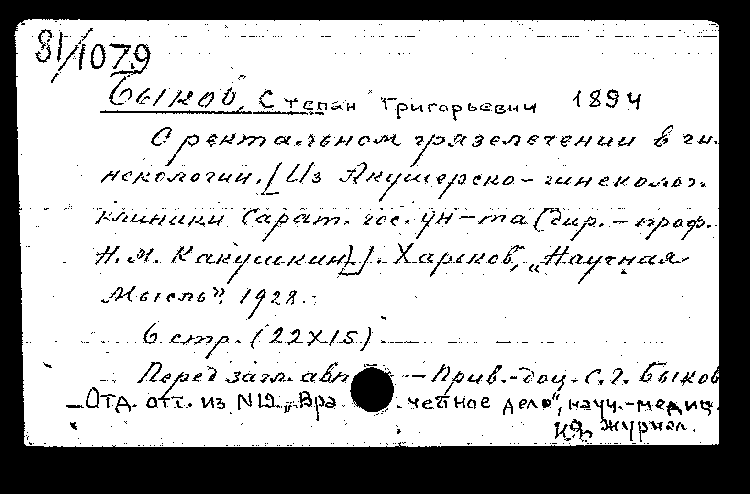 81/1079
Быков, Степан Григорьевич 1894
О ректальном грязелечении в ги-
некологии. [Из Акушерско-гинеколог.
клиники Сарат. гос. ун-та (дир. - проф.
Н. М. Какушкин)]. Харьков, "Научная
Мысль", 1928.
6 стр. (22X15)
Перед загл. авт. - Прив.-доц. С. Г. Быков
Отд. отт. из N19 "Вра чебное дело", науч.-медиц.
журнал.